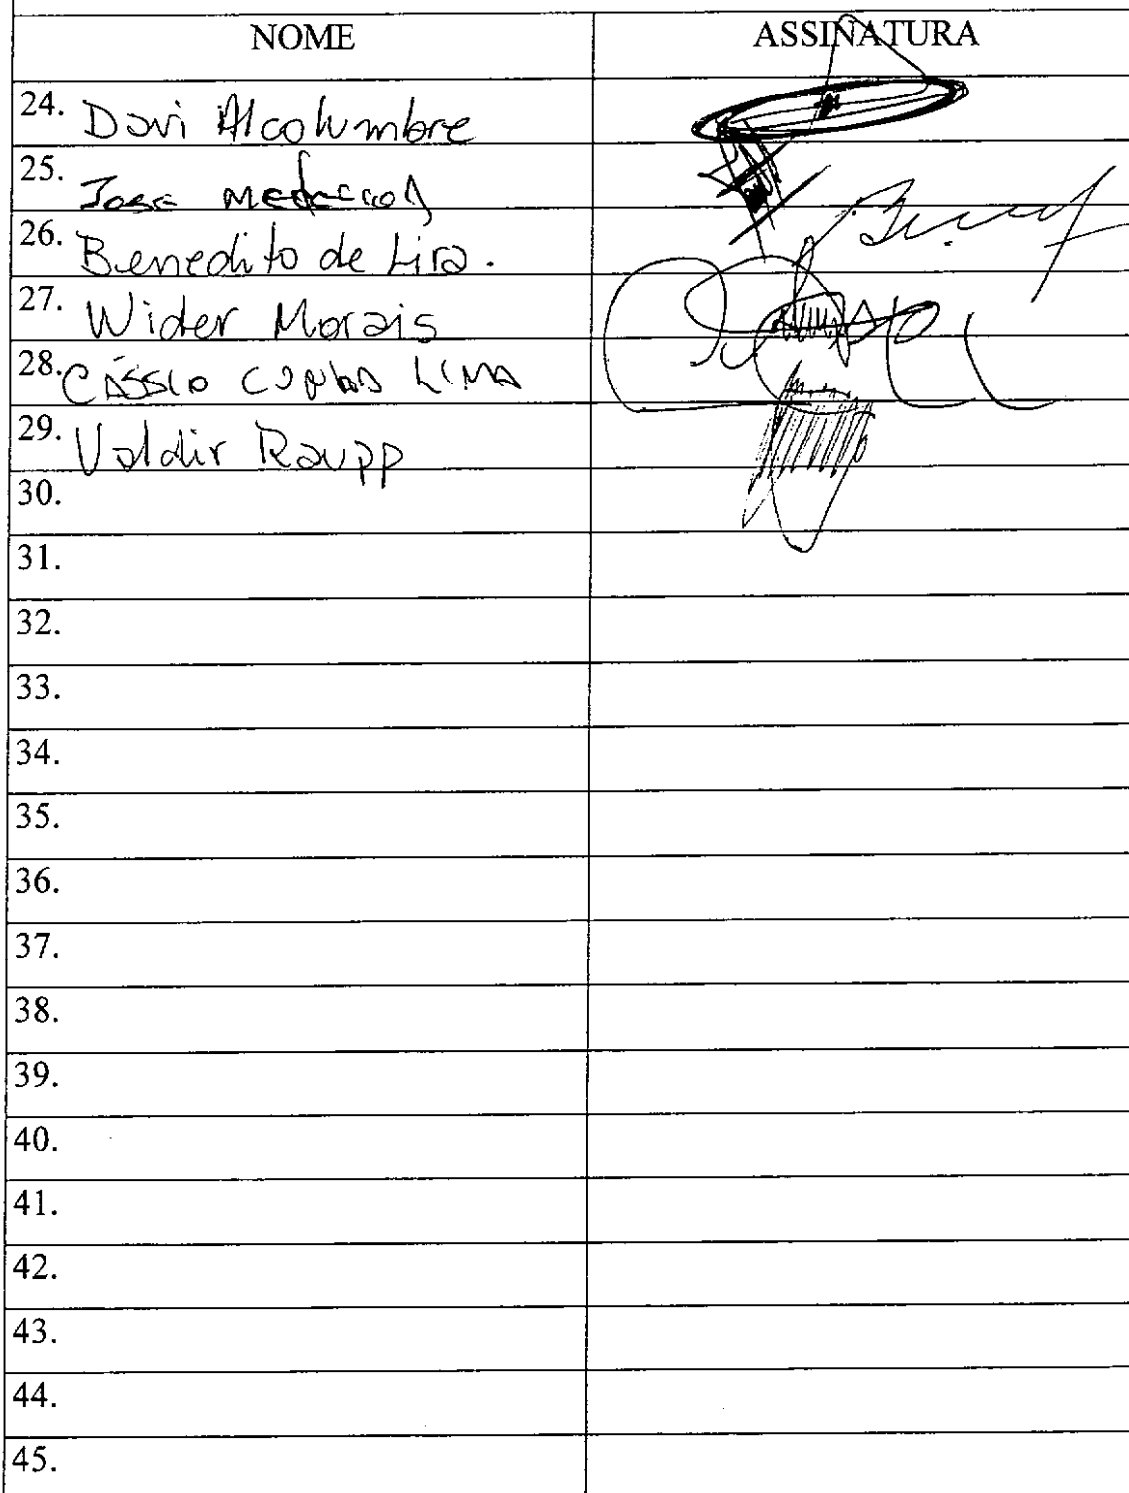 NOME ASSINATURA
24. Davi Alcolumbre
25. Jose Medeiros
26. Benedito de Lira.
27. Wilder Morais
28. CÁSSIO CUNHA LIMA
29. Valdir Raupp
30.
31.
32.
33.
34.
35.
36.
37.
38.
39.
40.
41.
42.
43.
44.
45.